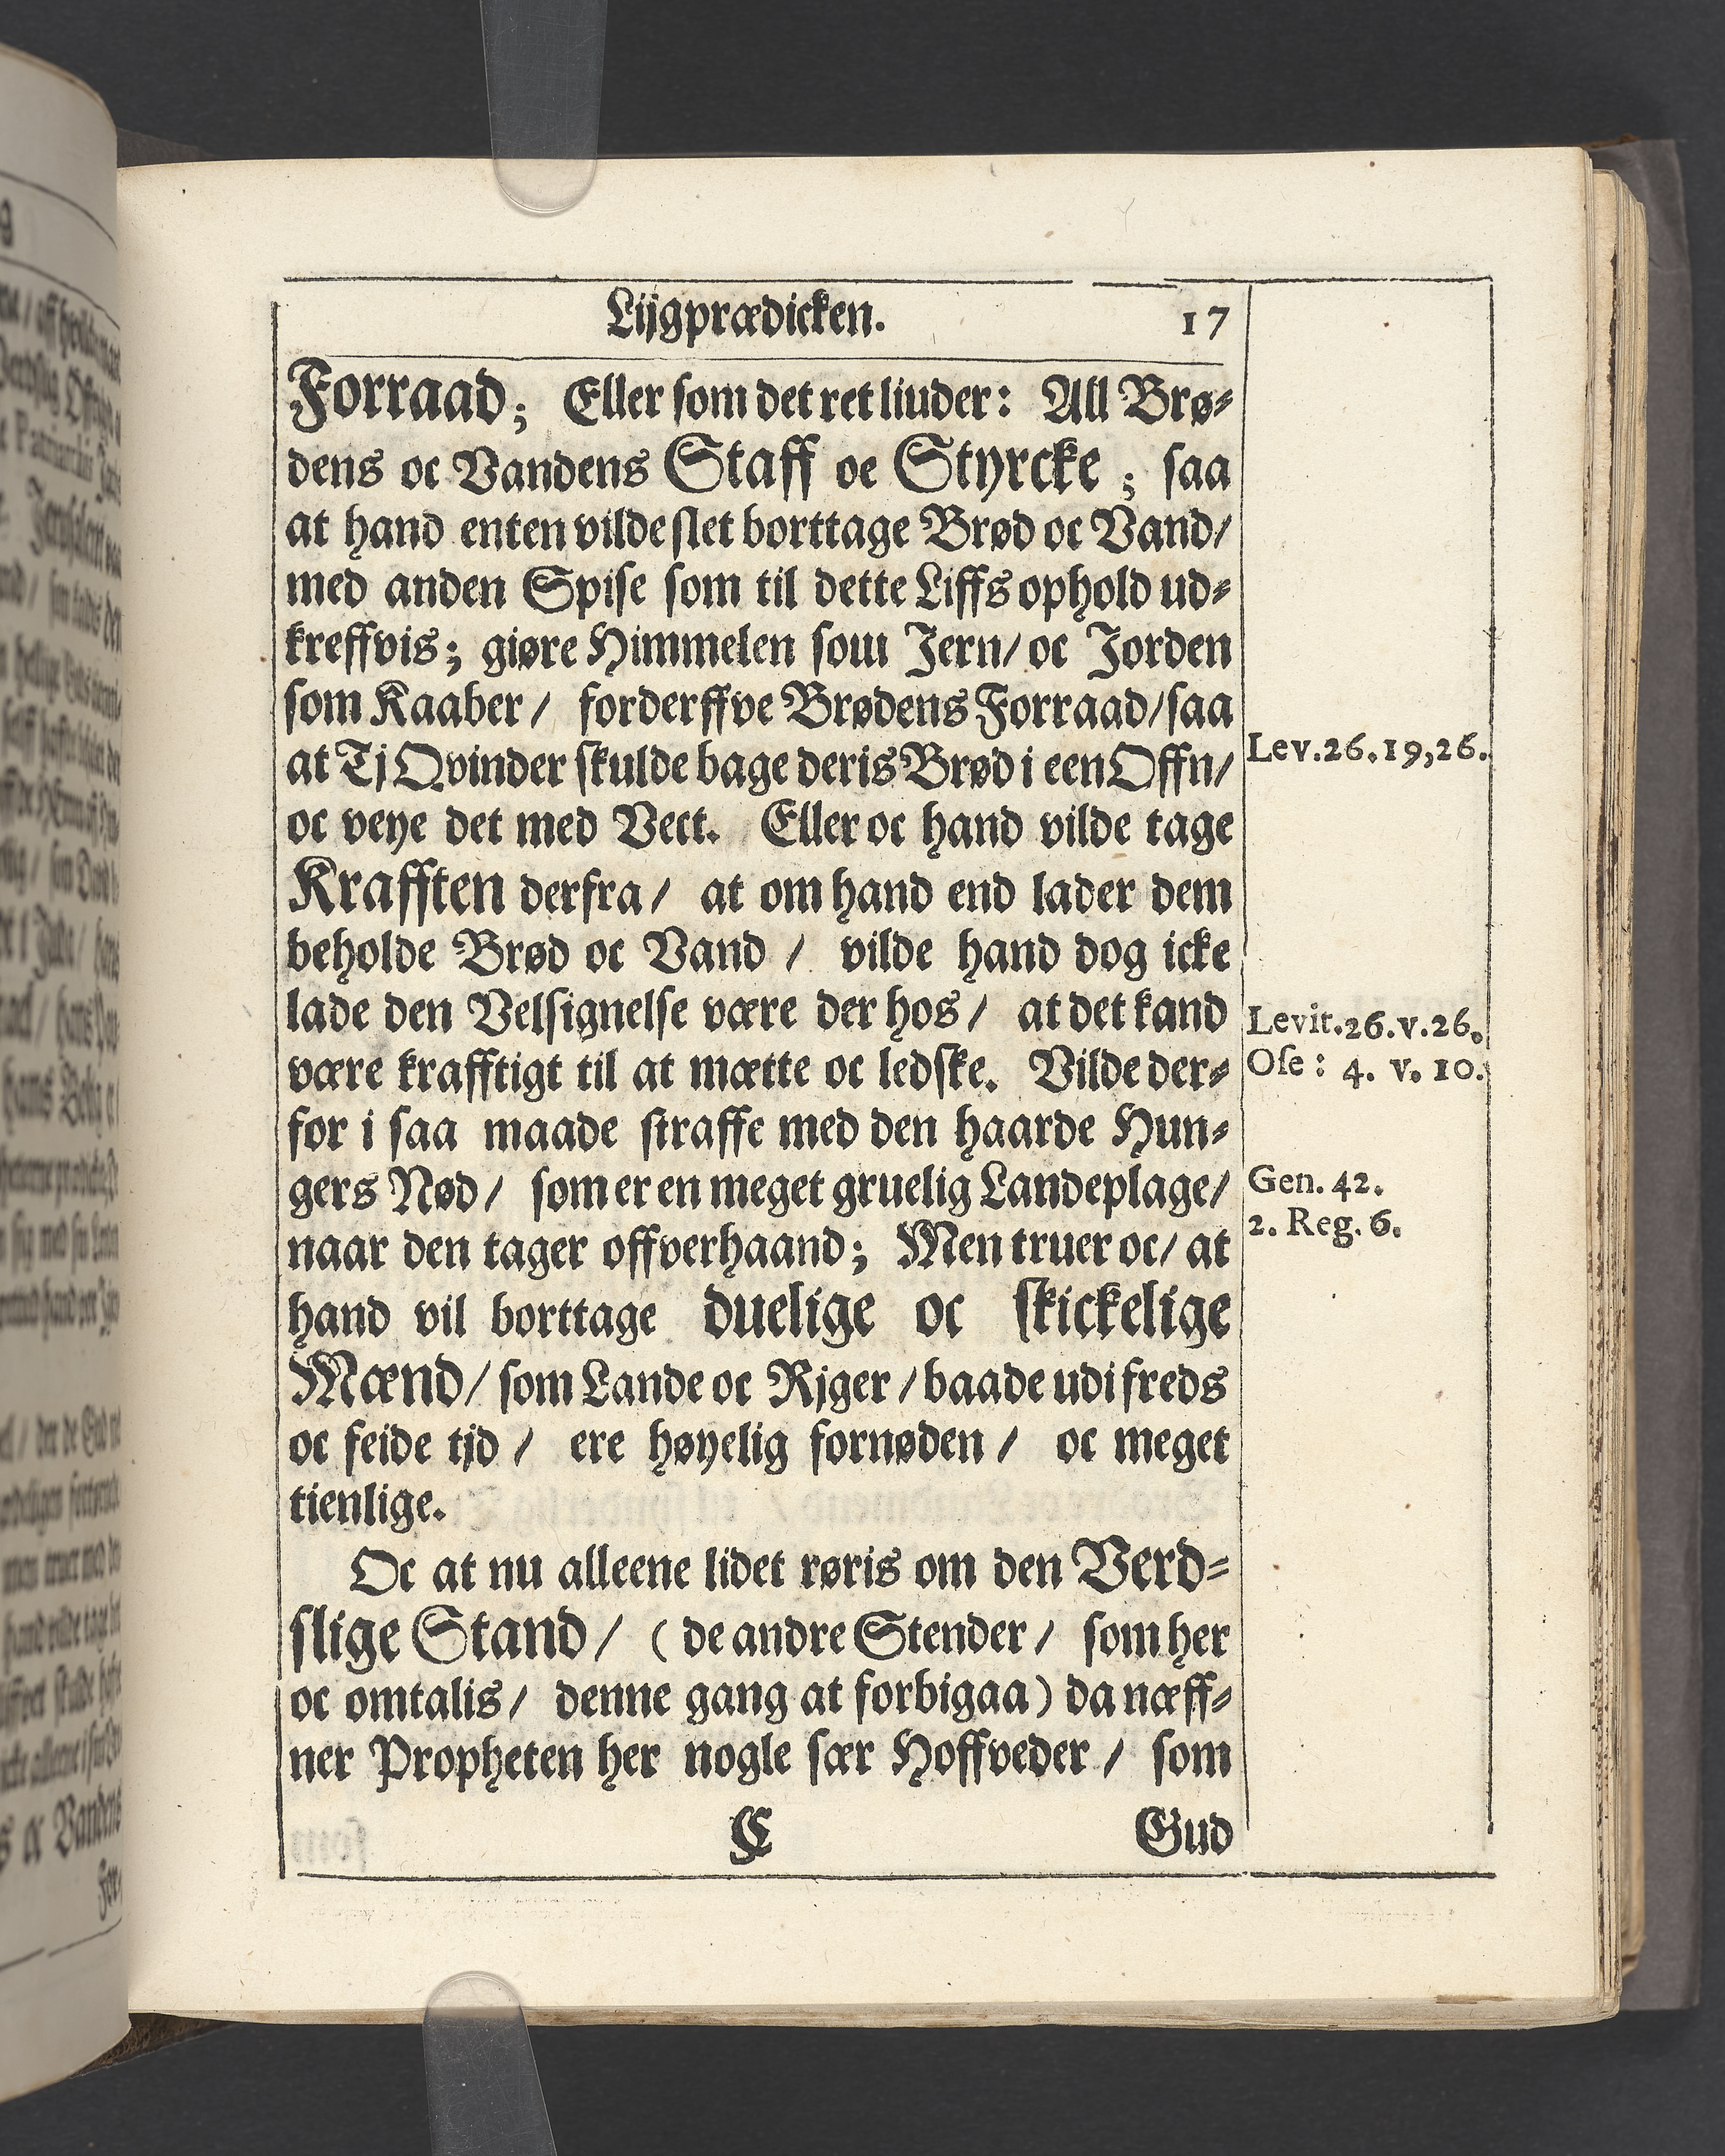 Lijgprædicken. 17
Forraad; Eller som det ret liuder: All Brø-
dens oc Vandens Staff oc Styrcke; saa
at hand enten vilde slet borttage Brød oc Vand/
med anden Spise som til dette Liffs ophold ud-
kreffvis; giøre Himmelen som Jern/ oc Jorden
som Kaaber/ forderffve Brødens Forraad/ saa
at Tj Qvinder skulde bage deris Brød i een Offn/
Lev.26.19,26.
oc veye det med Vect. Eller oc hand vilde tage
Krafften derfra/ at om hand end lader dem
beholde Brød oc Vand/ vilde hand dog icke
lade den Velsignelse være der hos/ at det kand
Levit.26.v.26.
være krafftigt til at mætte oc ledske. Vilde der-
Ose: 4. v. 10.
for i saa maade straffe med den haarde Hun-
gers Nød/ som er en meget gruelig Landeplage/
Gen. 42.
naar den tager offverhaand; Men truer oc/ at
2. Reg. 6.
hand vil borttage duelige oc skickelige
Mænd/ som Lande oc Rjger/ baade udi freds
oc feide tjd/ ere høyelig fornøden/ oc meget
tienlige.
Oc at nu alleene lidet røris om den Verd-
slige Stand/ (de andre Stender/ som her
oc omtalis/ denne gang at forbigaa) da næff-
ner Propheten her nogle sær Hoffveder/ som
C Gud